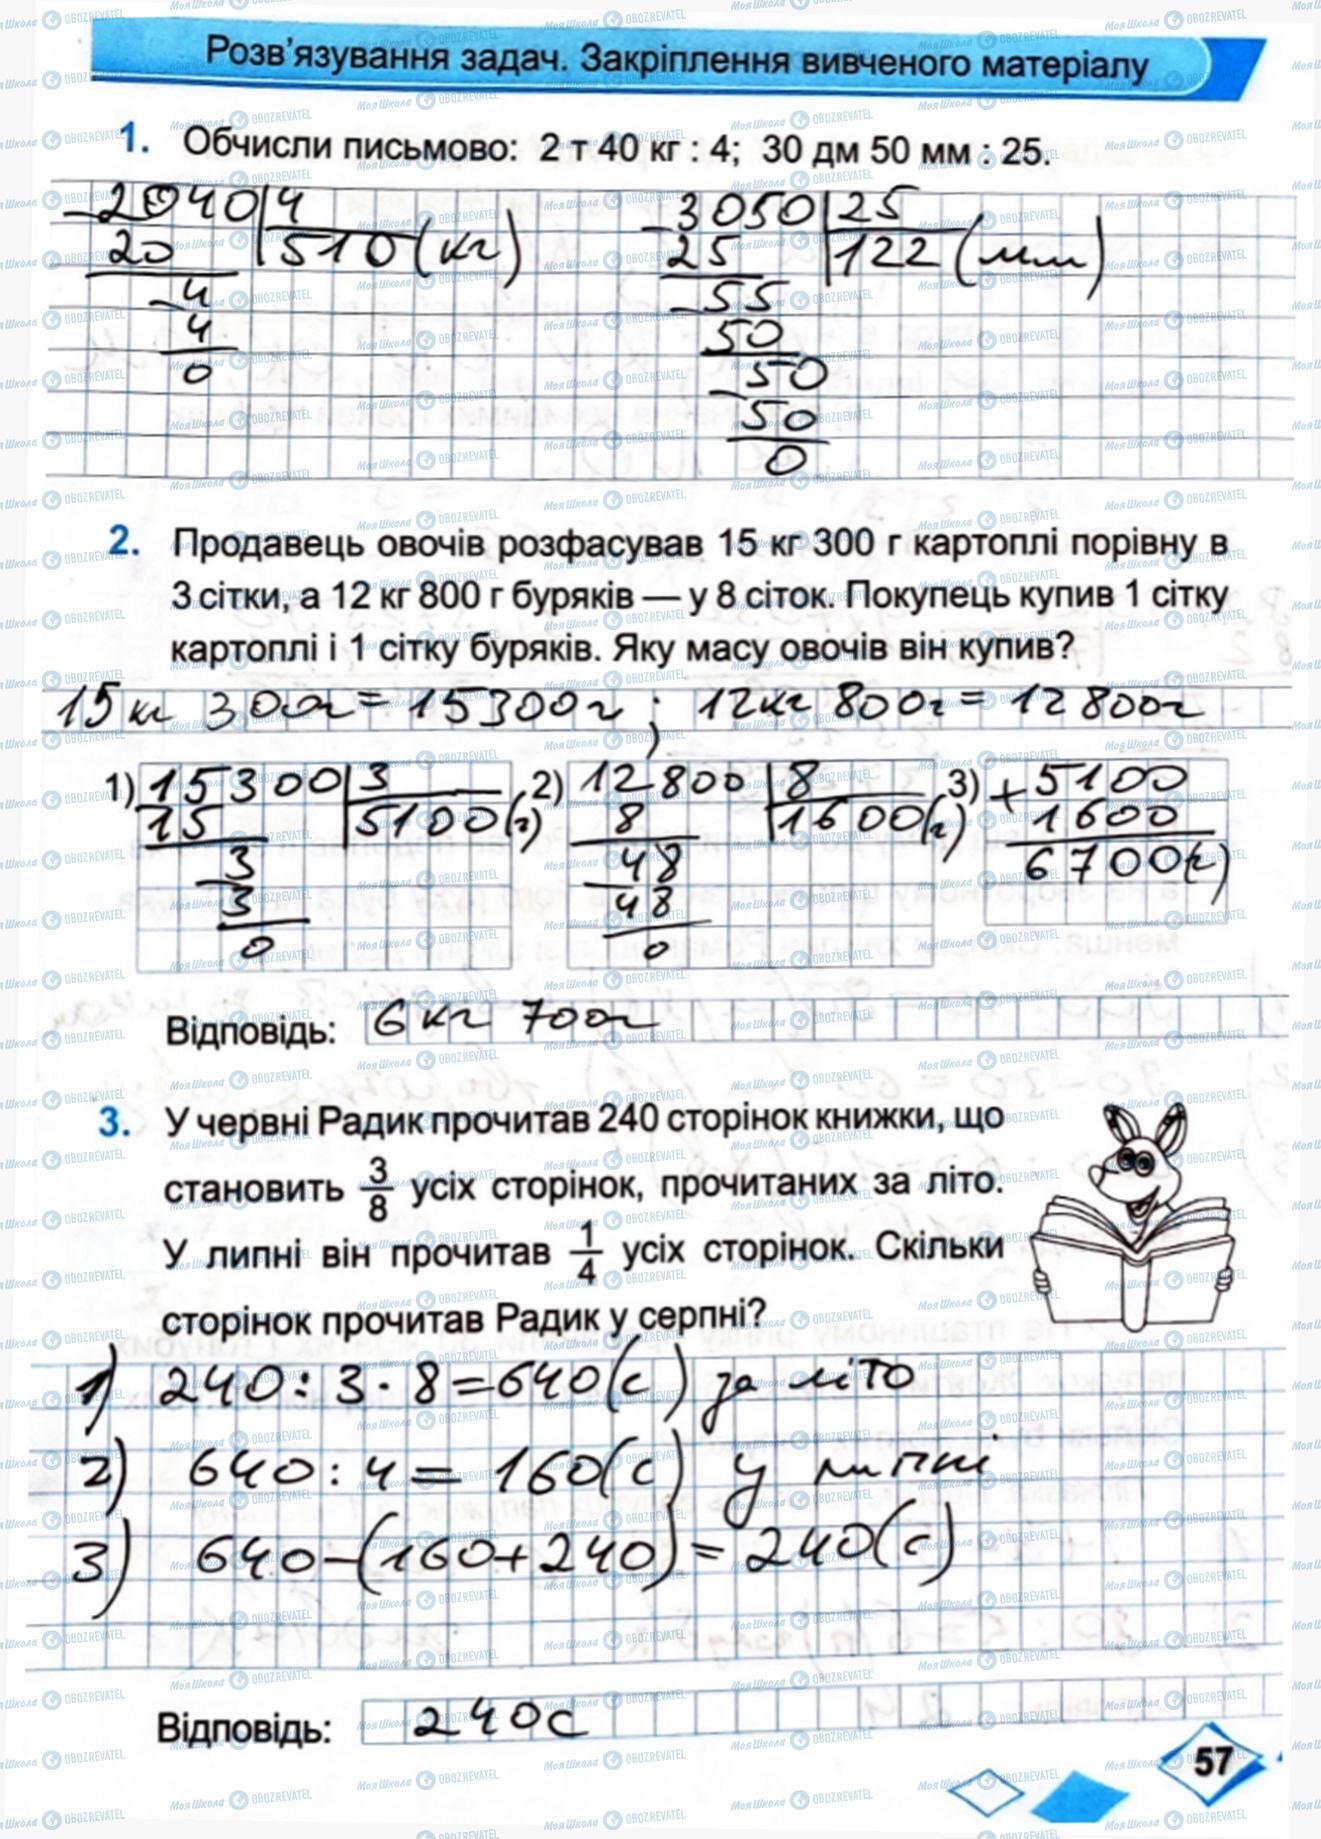 Розв'язування задач. Закріплення вивченого матеріалу
1. Обчисли письмово: 2 т 40 кг : 4; 30 дм 50 мм : 25.
2040 | 4
20 | 510 (кг)
4
4
0
3050 | 25
25 | 122 (мм)
55
50
50
50
0
2. Продавець овочів розфасував 15 кг 300 г картоплі порівну в
3 сітки, а 12 кг 800 г буряків — у 8 сіток. Покупець купив 1 сітку
картоплі і 1 сітку буряків. Яку масу овочів він купив?
15 кг 300г = 15300г ; 12кг 800г = 12800г
1) 15300 | 3
15 | 5100 (г)
3
3
0
2) 12800 | 8
8 | 1600 (г)
48
48
0
3) + 5100
1600
6700 (г)
Відповідь: 6 кг 700г
3. У червні Радик прочитав 240 сторінок книжки, що
становить 3/8 усіх сторінок, прочитаних за літо.
У липні він прочитав 1/4 усіх сторінок. Скільки
сторінок прочитав Радик у серпні?
1) 240 : 3 · 8 = 640 (с) за літо
2) 640 : 4 = 160 (с) у липні
3) 640 – (160 + 240) = 240 (с)
Відповідь: 240с
57
МояШкола OBOZREVATEL